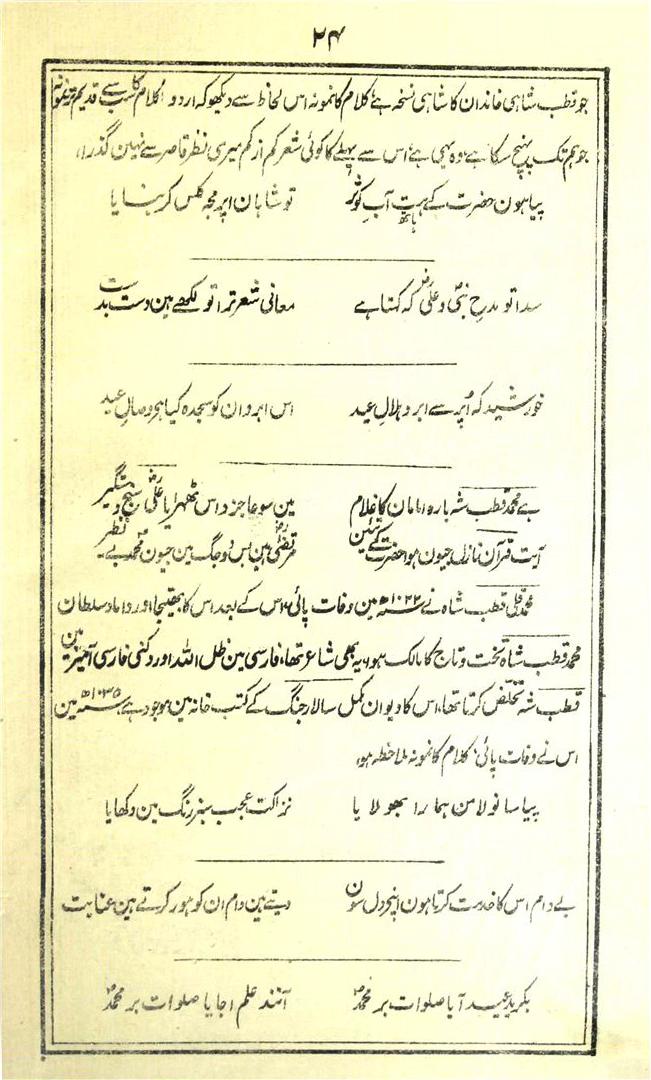 ۲۴
جو قطب شاہی خاندان کا شاہی نسخہ ہے، کلام کا نمونہ اس لحاظ سے دیکھو کہ اردو کلام کا سب سے قدیم نمونہ
جو ہم تک پہنچ سکا ہے، وہ یہی ہے، اس سے پہلے کا کوئی شعر کم از کم میری نظر قاصر سے نہین گذرا،
پیا ہون حضرت کے ہت آب کوثر تو شاہان اپر مجہ کلس کر بنایا
ہاتھ
سدا تو مدح نبیؐ و علیؓ کہ کہتا ہے معانی شعر ترا تو لکھے ہین دست بدست
خورشید کہ اُپر سے ابر و ہلالِ عید اس ابروان کو سجدہ کیا ہر وصالِ عید
ہے محمد قطب شہ بارہ امامان کا غلام مین سو عاجز داس ٹھہرایا علیؓ سچ دستگیر
آیت قرآن نازل جیون ہوا حضرت کے تئین مرتضیٰؓ ہین بس دو جگ مین جیون محمدؐ بے نظیر
محمد قلی قطب شاہ نے ۱۰۲۲ھ مین وفات پائی، اس کے بعد اس کا بھتیجا اور داماد سلطان
محمد قطب شاہ تخت و تاج کا مالک ہوا، یہ بھی شاعر تھا، فارسی مین ظل اللہ اور دکنی فارسی آمیز مین
قطب شہ تخلّص کرتا تھا، اس کا دیوان مکمل سالار جنگ کے کتب خانہ مین موجود ہے، ۱۰۳۵ھ مین
اس نے وفات پائی، کلام کا نمونہ ملاحظہ ہو،
پیا سانولا من ہمارا بھولایا نزاکت عجب سبز رنگ مین دکھایا
بے دام اس کا خدمت کرتا ہون اپنی دل سون دیتے ہین دام ان کو ہور کرتے ہین عنایت
بکرید عید آیا صلوات بر محمدؐ آنند علم اجایا صلوات بر محمدؐ